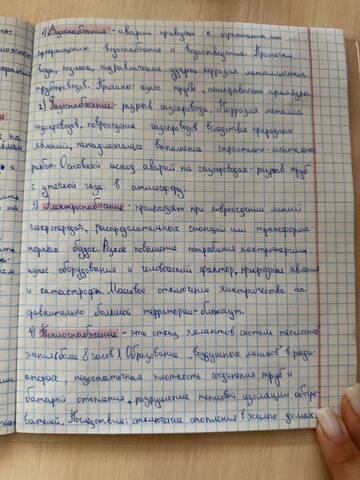 1) Водоснабжение - аварии приводят к ограничению или
прекращению водоснабжения и водоотведения. Протечки
воды, размыв, гидравлические удары, коррозия металлических
трубопроводов. Причины: износ трубы, неисправность арматуры.
2) Газоснабжение - разрыв газопровода. Коррозия металла
газопроводов, повреждение газопроводов вследствие природных
явлений, ненадлежащее выполнение строительно-монтажных
работ. Основной исход аварий на газопроводах - разрыв труб
с утечкой газа в атмосферу.
3) Электроснабжение - происходят при повреждении линий
электропередач, распределительных станций или трансформа-
торных будок. Резкое повышение потребления электроэнергии,
износ оборудования и человеческий фактор, природные явления
и катастрофы. Массовое отключение электричества на
сравнительно большой территории - блэкаут.
4) Теплоснабжение - это отказ элементов систем теплосна-
жения (более 8 часов). Образование "воздушных мешков" в ради-
аторах, недостаточная плотность соединения труб и
батарей отопления, разрушение тепловой изоляции обогре-
вателей. Последствия: отключение отопления в жилых домах.